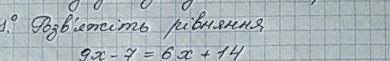 1.° Розв'яжіть рівняння
9x - 7 = 6x + 14